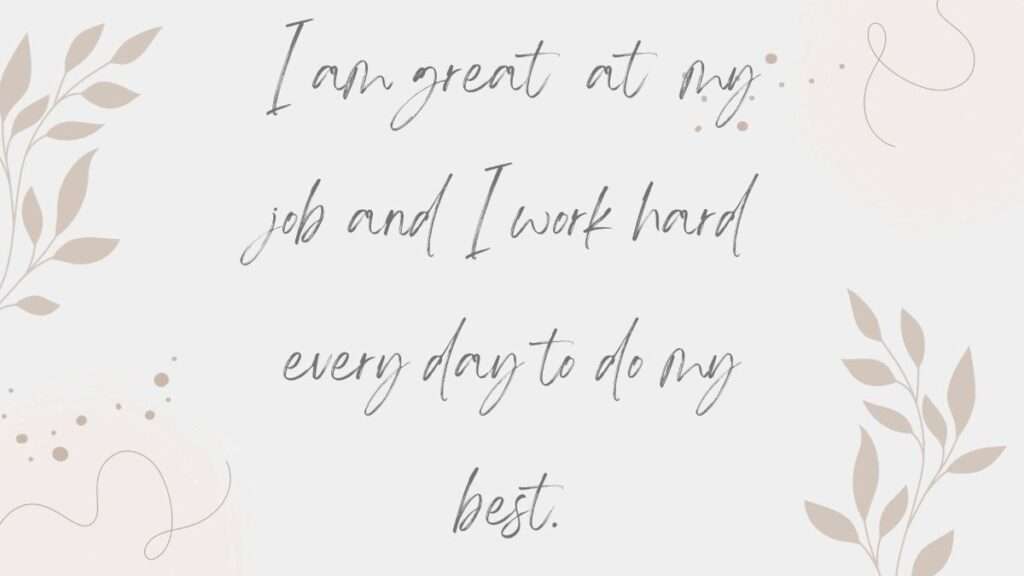 I am great at my
job and I work hard
every day to do my
best.